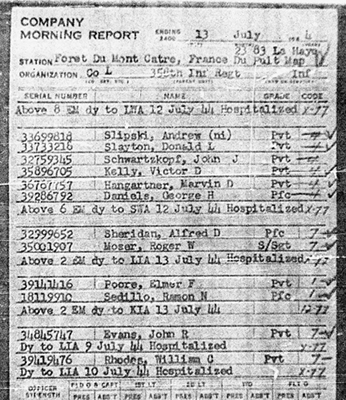 COMPANY
MORNING REPORT ENDING 2400 13 July 4
STATION Foret Du Mont Catre, France Du Puit Map
ORGANIZATION Co L 358th Inf Regt Inf
SERIAL NUMBER NAME GRADE CODE
Above 8 EM dy to LWA 12 July 44 Hospitalized X-77
33699818 Slipski, Andrew (ni) Pvt
33733216 Slayton, Donald L Pvt
32759345 Schwartzkopf, John J Pvt
35896705 Kelly, Victor D Pvt
36767757 Hangartner, Marvin D Pvt
39286792 Daniels, George H Pfc
Above 6 EM dy to SWA 12 July 44 Hospitalized X-77
32999652 Sheridan, Alfred D Pfc 7
35001907 Moser, Roger W S/Sgt 7
Above 2 EM dy to LIA 13 July 44 Hospitalized X-77
39141416 Poore, Elmer F Pvt
18119910 Sedillo, Ramon N Pfc
Above 2 EM dy to KIA 13 July 44
34845747 Evans, John R Pvt 7
Dy to LIA 9 July 44 Hospitalized X-77
39419476 Rhodes, William C Pvt 7
Dy to LIA 10 July 44 Hospitalized X-77
OFFICER STRENGTH FLD O & CAPT 1ST LT 2D LT WO FLT O
PRES ABS'T PRES ABS'T PRES ABS'T PRES ABS'T PRES ABS'T